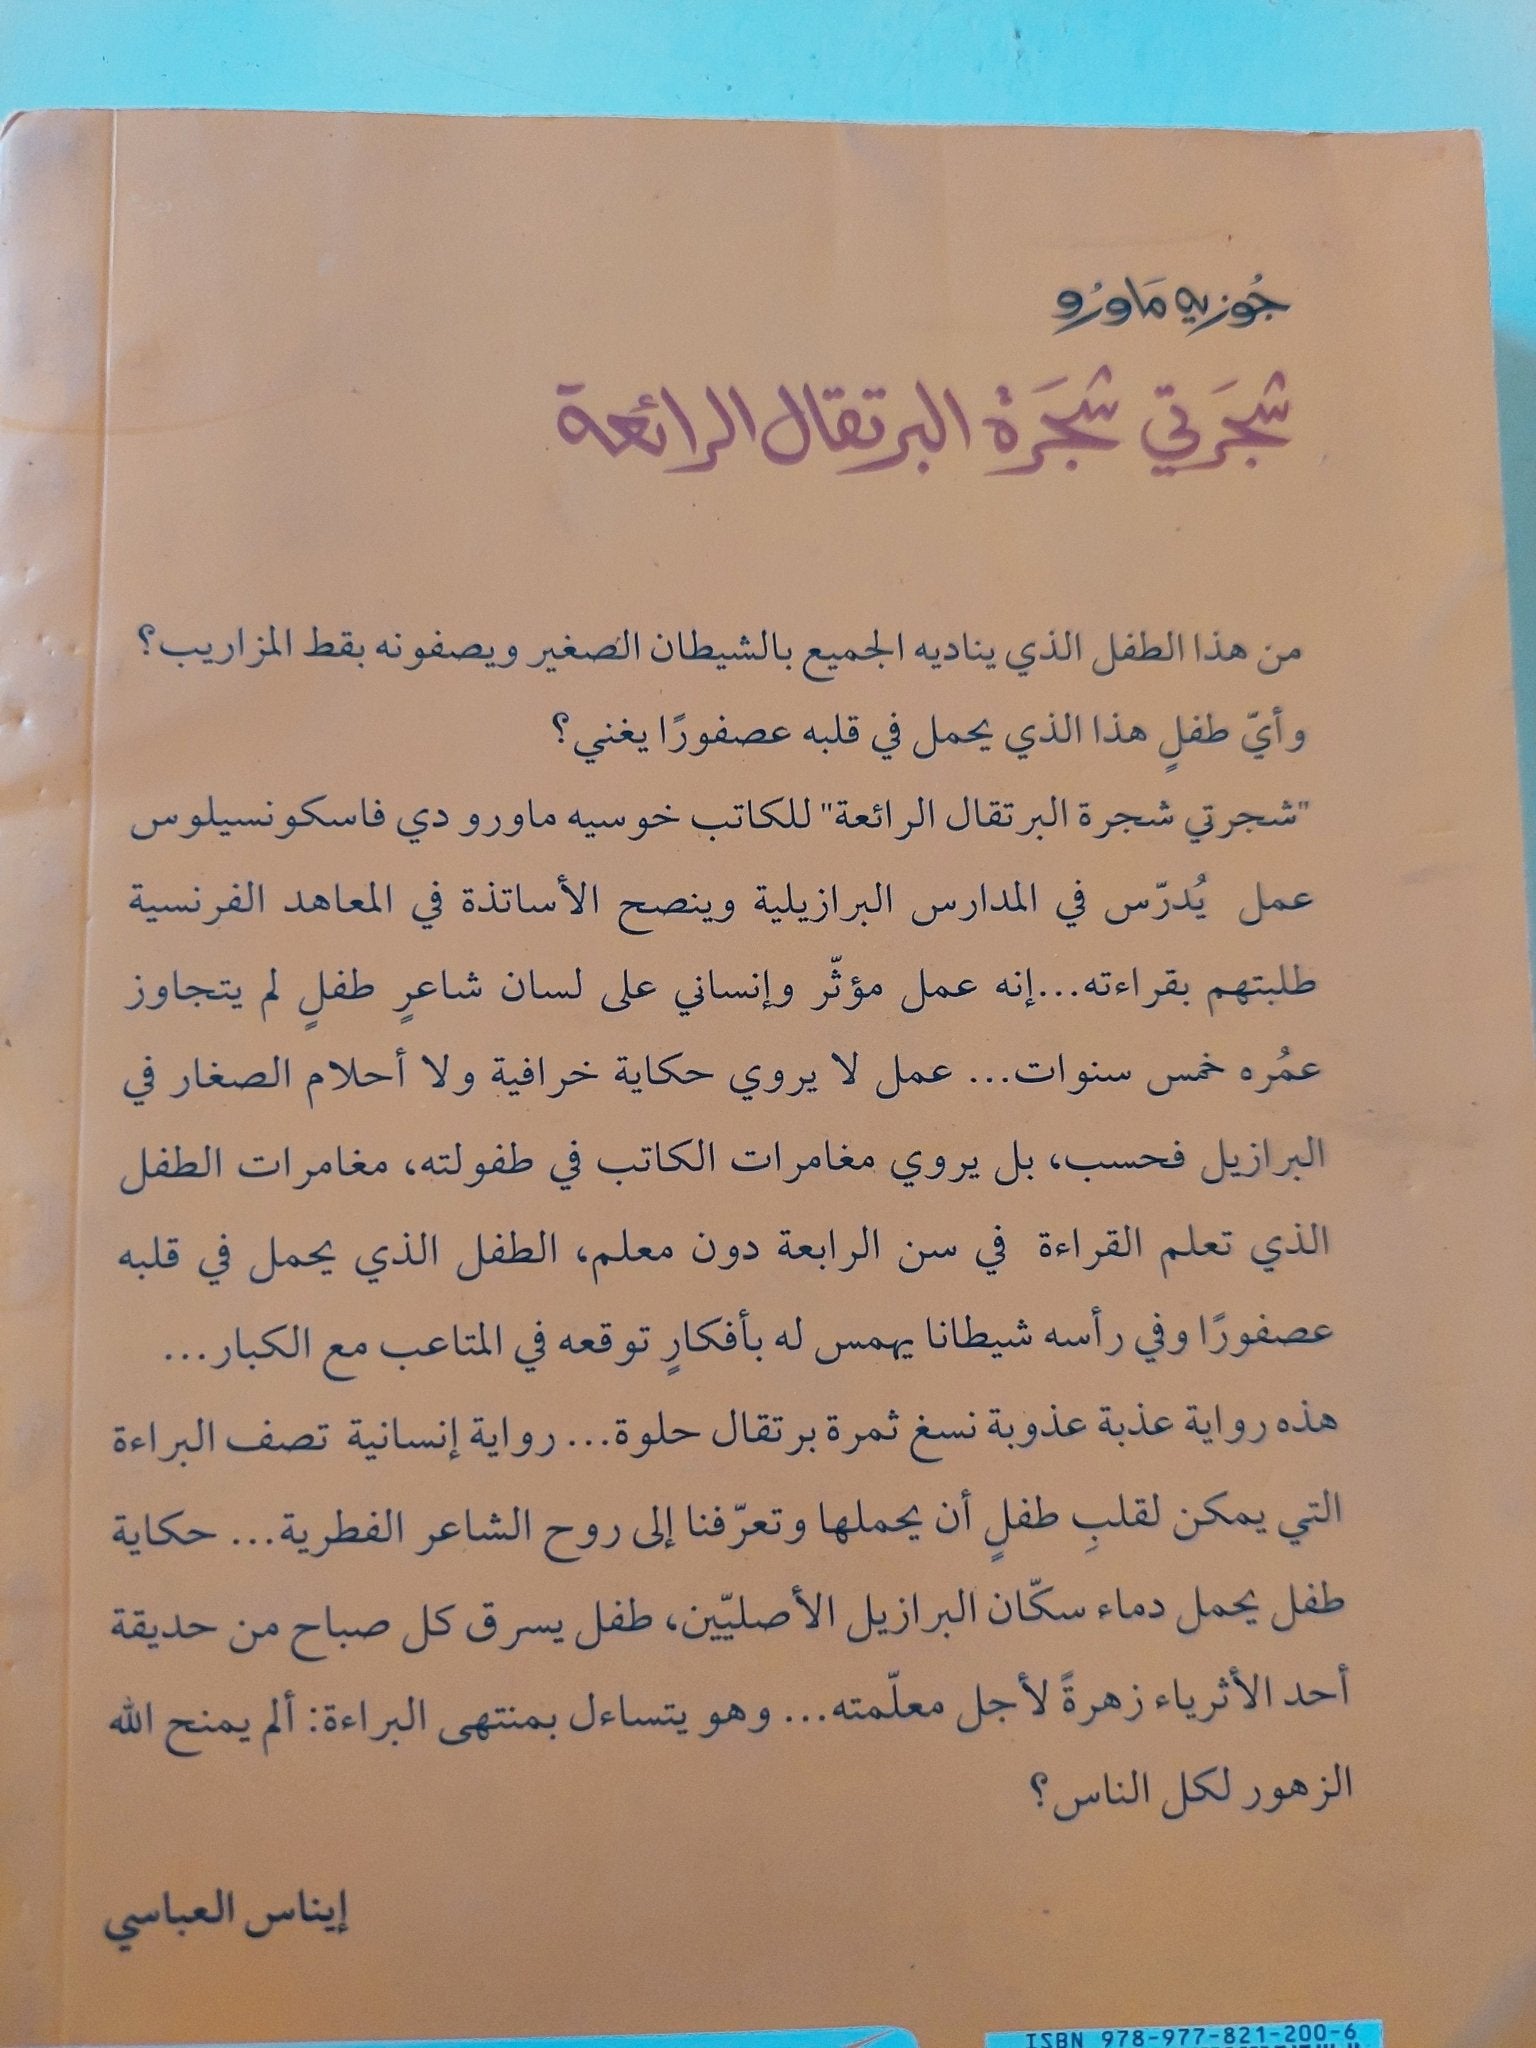 جُوزيه مَاورُو
شجَرتي شجَرة البرتقال الرائعة
من هذا الطفل الذي يناديه الجميع بالشيطان الصغير ويصفونه بقط المزاريب؟
وأيّ طفلٍ هذا الذي يحمل في قلبه عصفورًا يغني؟
"شجرتي شجرة البرتقال الرائعة" للكاتب خوسيه ماورو دي فاسكونسيلوس
عمل يُدرّس في المدارس البرازيلية وينصح الأساتذة في المعاهد الفرنسية
طلبتهم بقراءته...إنه عمل مؤثّر وإنساني على لسان شاعرٍ طفلٍ لم يتجاوز
عمُره خمس سنوات... عمل لا يروي حكاية خرافية ولا أحلام الصغار في
البرازيل فحسب، بل يروي مغامرات الكاتب في طفولته، مغامرات الطفل
الذي تعلم القراءة في سن الرابعة دون معلم، الطفل الذي يحمل في قلبه
عصفورًا وفي رأسه شيطانا يهمس له بأفكارٍ توقعه في المتاعب مع الكبار...
هذه رواية عذبة عذوبة نسغ ثمرة برتقال حلوة... رواية إنسانية تصف البراءة
التي يمكن لقلبِ طفلٍ أن يحملها وتعرّفنا إلى روح الشاعر الفطرية... حكاية
طفل يحمل دماء سكّان البرازيل الأصليّين، طفل يسرق كل صباح من حديقة
أحد الأثرياء زهرةً لأجل معلّمته... وهو يتساءل بمنتهى البراءة: ألم يمنح الله
الزهور لكل الناس؟
إيناس العباسي
ISBN 978-977-821-200-6